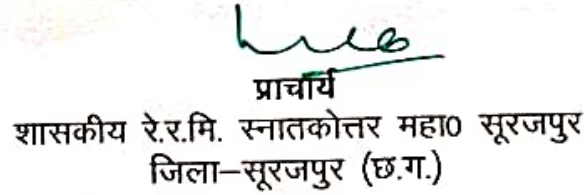 प्राचार्य
शासकीय रे.र.मि. स्नातकोत्तर महा0 सूरजपुर
जिला–सूरजपुर (छ.ग.)